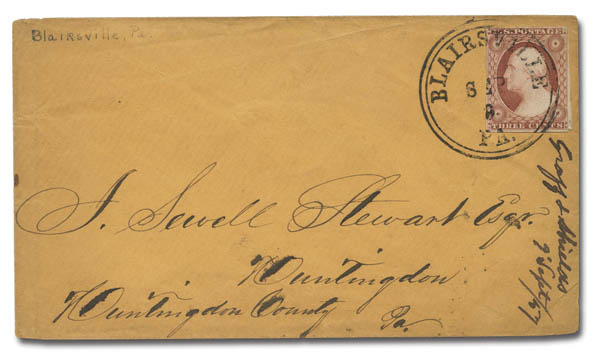 Blairsville, Pa.
BLAIRSVILLE
SEP
8
PA.
U.S. POSTAGE
THREE CENTS
J. Sewell Stewart Esqr.
Huntingdon
Huntingdon County
Pa.